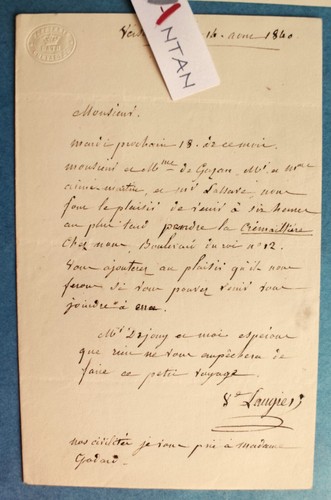 ANTAN
Monsieur.
mardi prochain 18. de ce mois.
monsieur et Mme de Guyon, Mr. et mme
et mr nous
font le plaisir de venir à six heures
au plus tard pendre la Crémaillère
chez nous, Boulevard du roi no 12.
Vous ajouterez au plaisir qu'ils nous
feront si vous pouvez venir vous
joindre à eux
Mr. Dejouy et moi espérons
que rien ne vous empêchera de
faire ce petit voyage.
Ve Laugier
nos civilités je vous prie à madame
Godard.